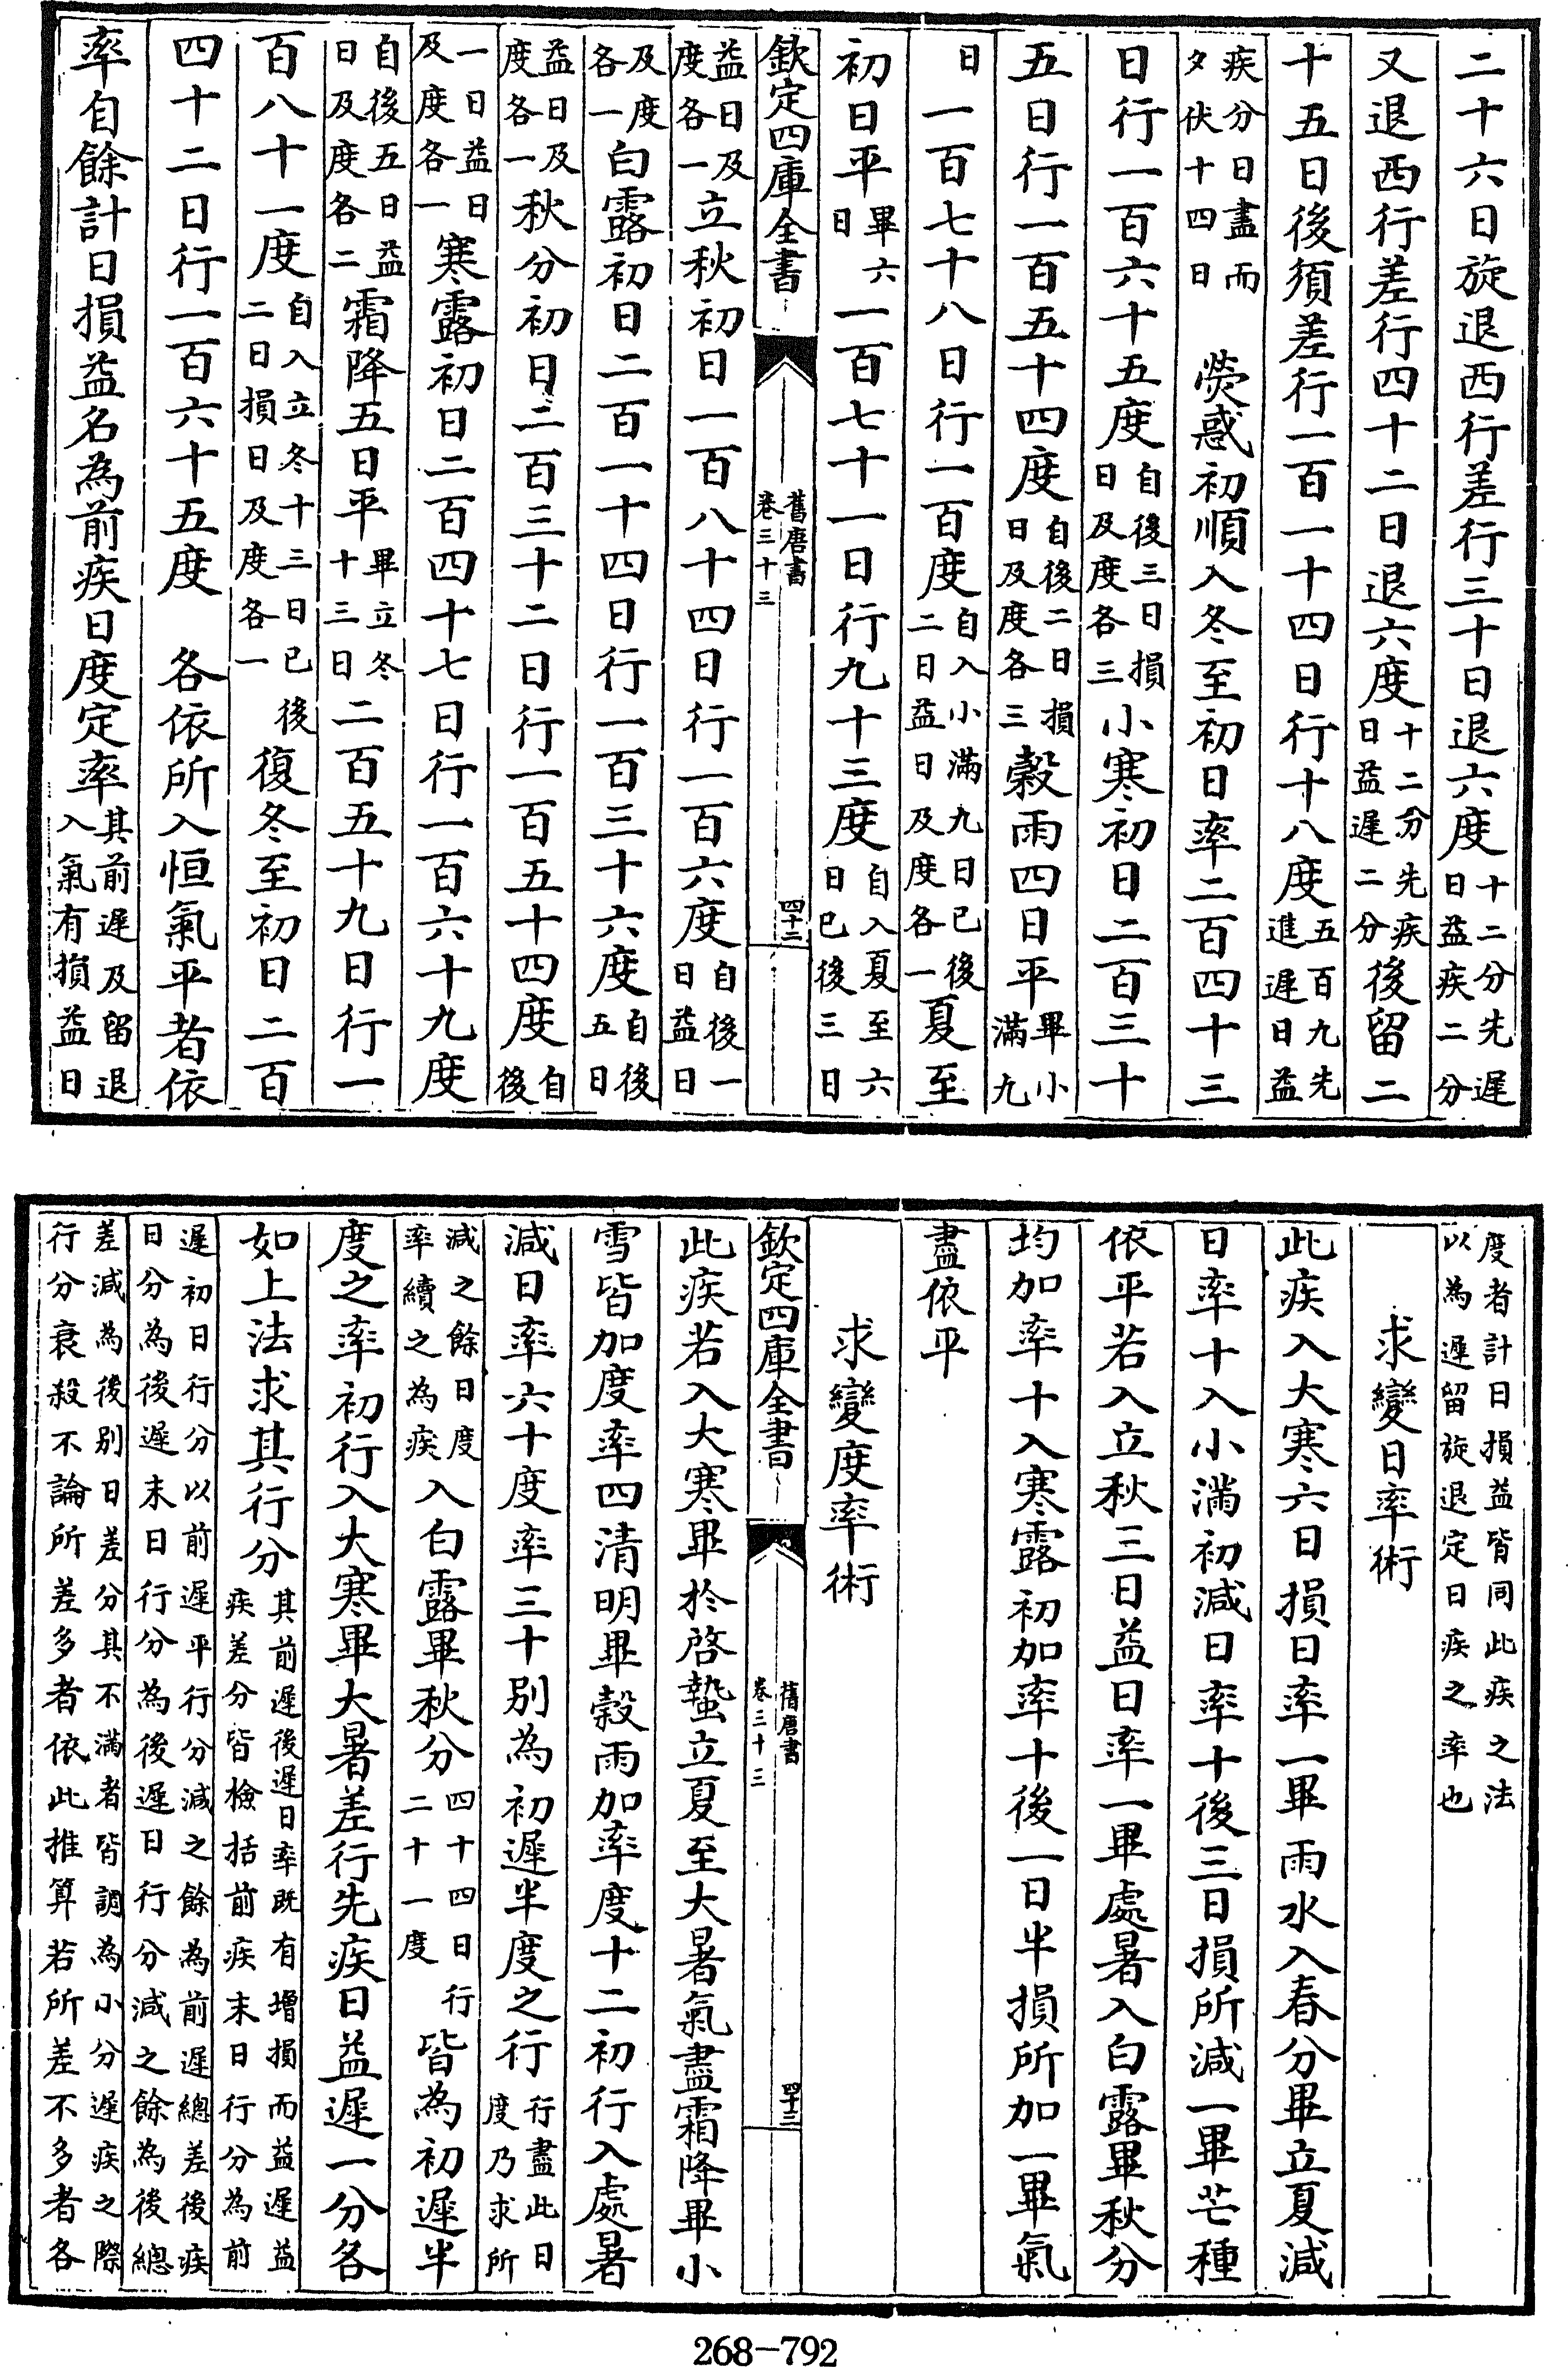 二十六日旋退西行差行三十日退六度十二分先遲日益疾二分
又退西行差行四十二日退六度十二分先疾日益遲二分後留二
十五日後須差行一百一十四日行十八度五百九先進遲日益
疾分日盡而夕伏十四日　熒惑初順入冬至初日率二百四十三
日行一百六十五度自後三日損日及度各三小寒初日二百三十
五日行一百五十四度自後二日損日及度各三穀雨四日平畢小滿九
日一百七十八日行一百度自入小滿九日已後二日益日及度各一夏至
初日平畢六日一百七十一日行九十三度自入夏至六日已後三日
欽定四庫全書　舊唐書卷三十三　四十二
益日及度各一立秋初日一百八十四日行一百六度自後一日益日
及度各一白露初日二百一十四日行一百三十六度自後五日
益日及度各一秋分初日二百三十二日行一百五十四度自後
一日益日及度各一寒露初日二百四十七日行一百六十九度
自後五日益日及度各二霜降五日平畢立冬十三日二百五十九日行一
百八十一度自入立冬十三日已後二日損日及度各一復冬至初日二百
四十二日行一百六十五度　各依所入恒氣平者依
率自餘計日損益名為前疾日度定率其前遲及留退入氣有損益日
度者計日損益皆同此疾之法以為遲留旋退定日疾之率也
求變日率術
此疾入大寒六日損日率一畢雨水入春分畢立夏減
日率十入小滿初減日率十後三日損所減一畢芒種
依平若入立秋三日益日率一畢處暑入白露畢秋分
均加率十入寒露初加率十後一日半損所加一畢氣
盡依平
求變度率術
欽定四庫全書　舊唐書卷三十三　四十三
此疾若入大寒畢於啓蟄立夏至大暑氣盡霜降畢小
雪皆加度率四清明畢穀雨加率度十二初行入處暑
減日率六十度率三十別為初遲半度之行行盡此日度乃求所
減之餘日度率續之為疾入白露畢秋分四十四日行二十一度皆為初遲半
度之率初行入大寒畢大暑差行先疾日益遲一分各
如上法求其行分其前遲後遲日率既有增損而益遲益疾差分皆檢括前疾末日行分為前
遲初日行分以前遲平行分減之餘為前遲總差後疾日分為後遲末日行分為後遲日行分減之餘為後總
差減為後別日差分其不滿者皆調為小分遲疾之際行分衰殺不論所差多者依此推算若所差不多者各
268-792